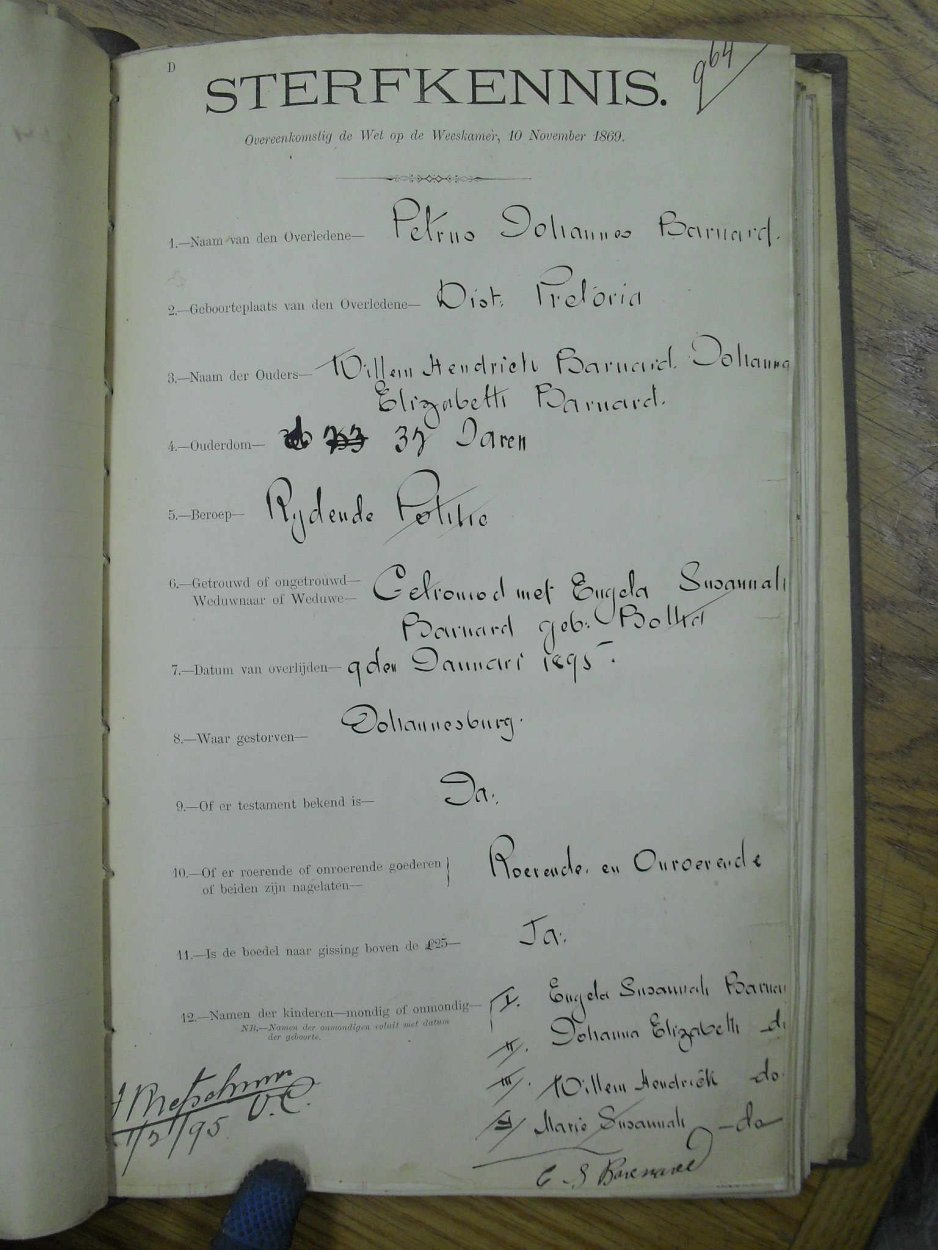 D
964
STERFKENNIS.
Overeenkomstig de Wet op de Weeskamer, 10 November 1869.
1.—Naam van den Overledene— Petrus Johannes Barnard.
2.—Geboorteplaats van den Overledene— Dist. Pretoria
3.—Naam der Ouders— Willem Hendrick Barnard. Johanna
Elizabeth Barnard.
4.—Ouderdom— 37 Jaren
5.—Beroep— Rydende Politie
6.—Getrouwd of ongetrouwd—
Weduwnaar of Weduwe— Getrouwd met Engela Susannah
Barnard geb:
7.—Datum van overlijden— 9den Januari 1895.
8.—Waar gestorven— Johannesburg.
9.—Of er testament bekend is— Ja.
10.—Of er roerende of onroerende goederen
of beiden zijn nagelaten— Roerende. en Onroerende
11.—Is de boedel naar gissing boven de £25— Ja.
12.—Namen der kinderen—mondig of onmondig— I. Engela Susannah Barnar
NB.—Namen der onmondigen voluit met datum
der geboorte.
II. Johanna Elizabeth d
III. Willem Hendrik do.
IV. Maria Susannah — do
E S Barnard